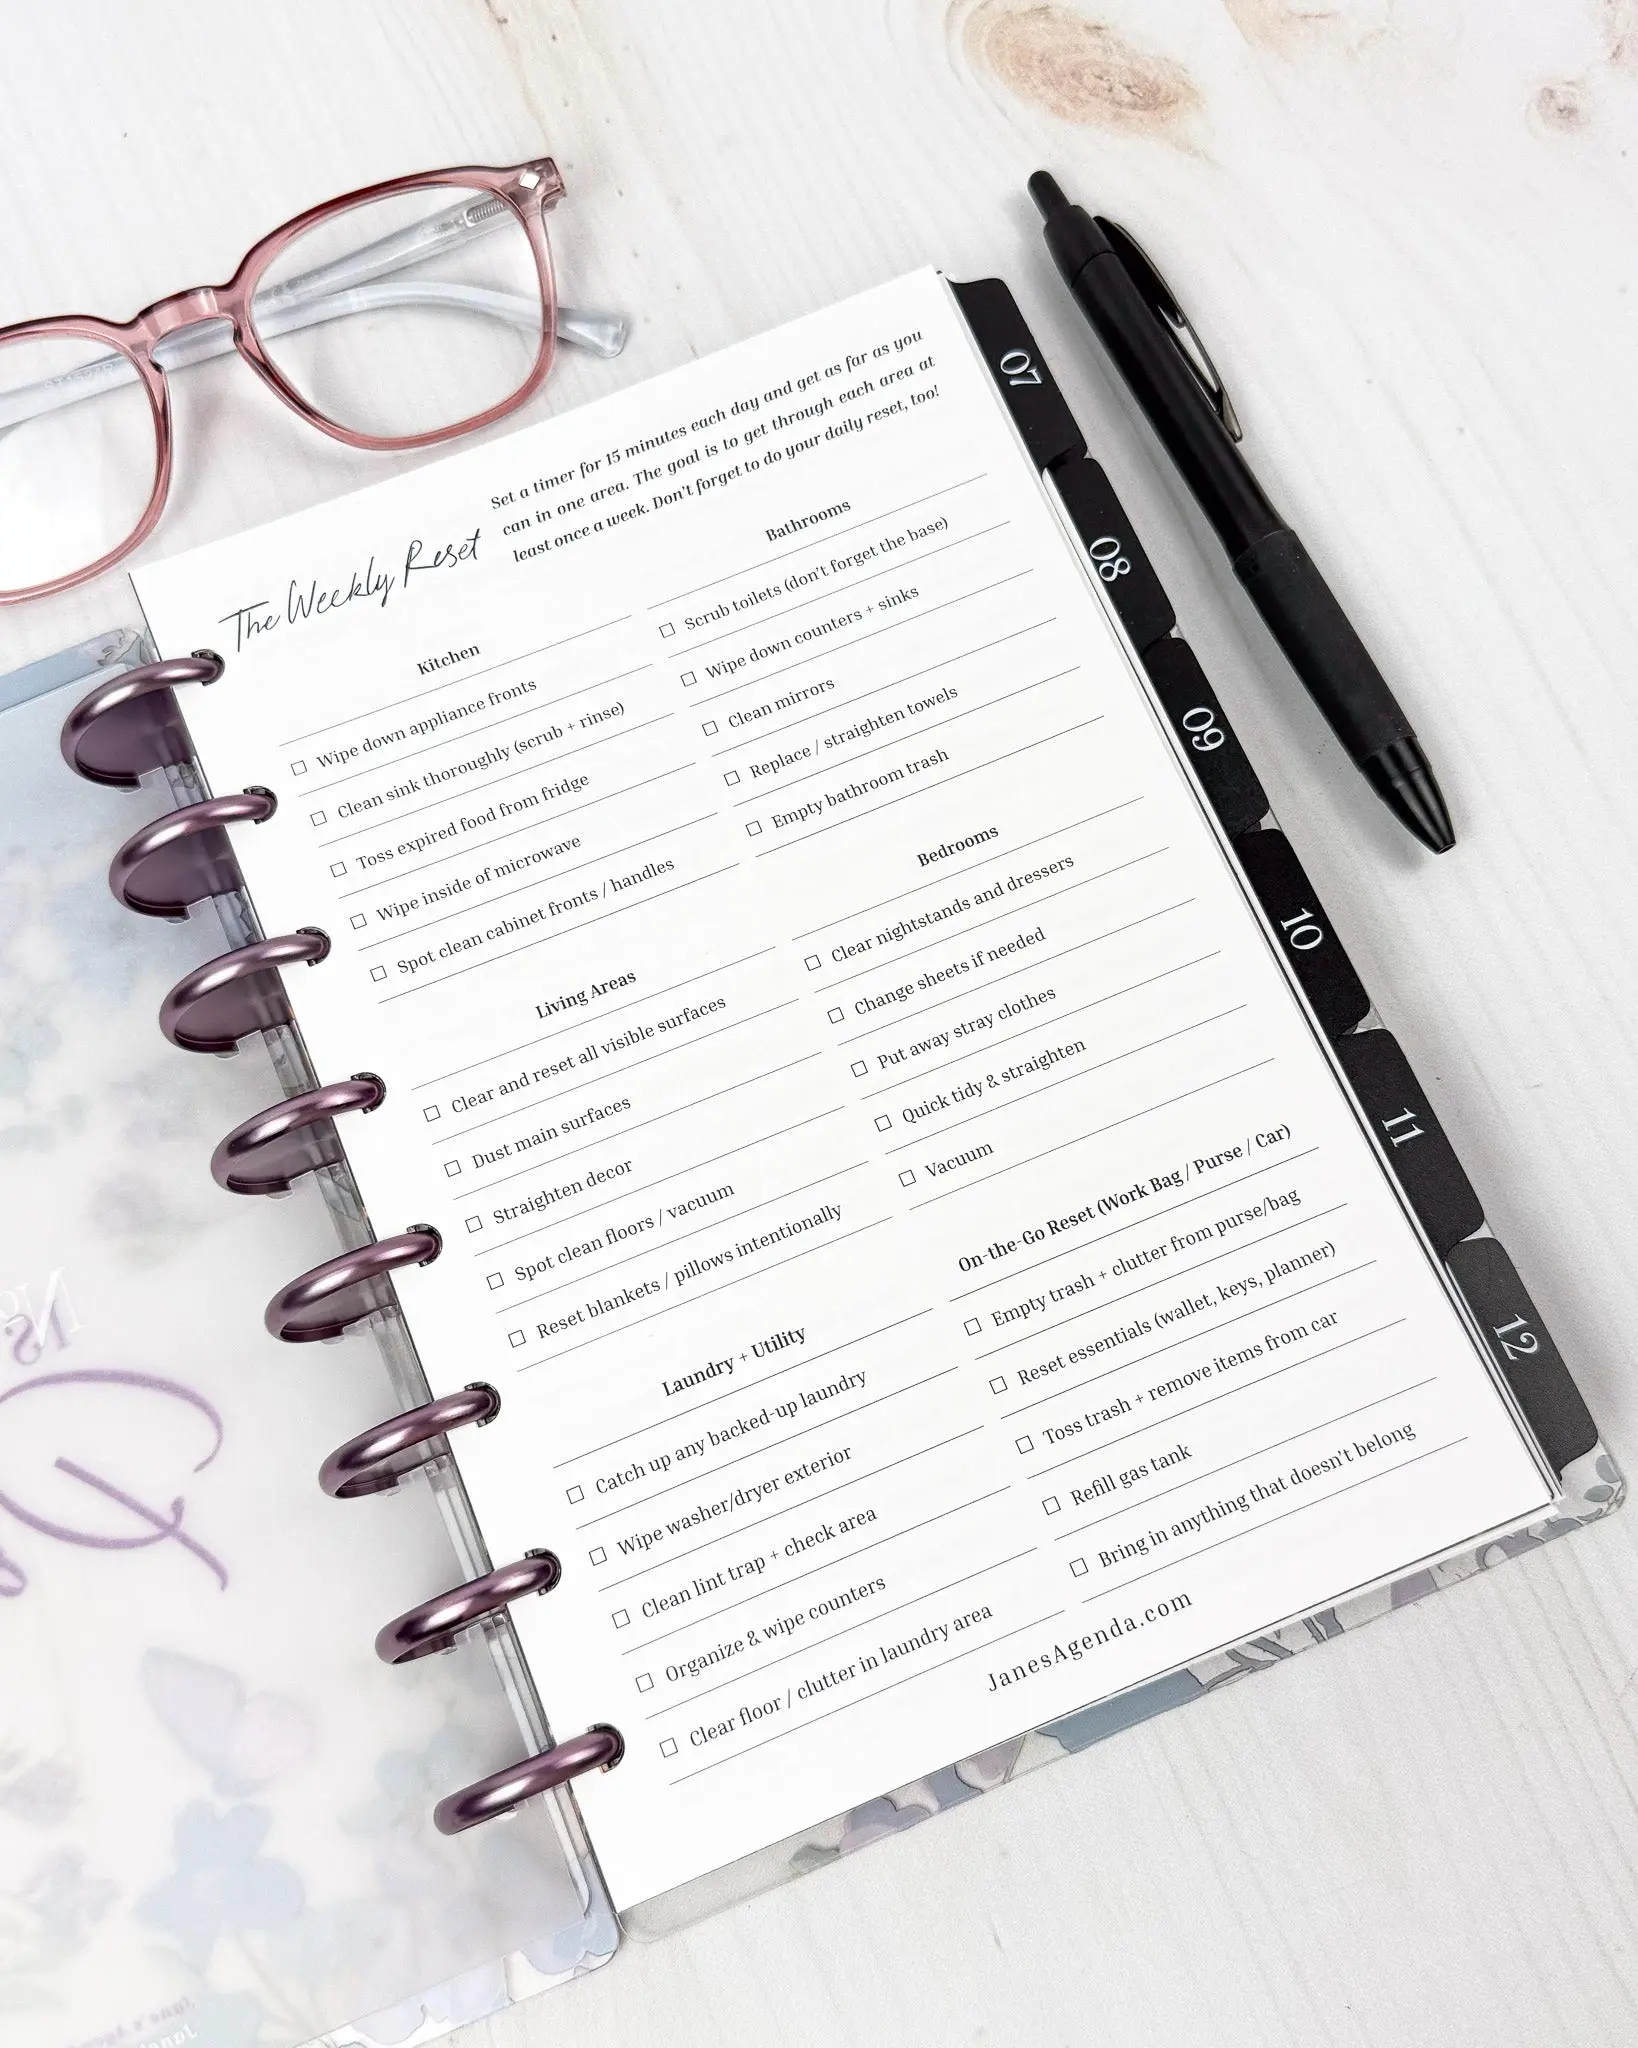 The Weekly Reset
Set a timer for 15 minutes each day and get as far as you
can in one area. The goal is to get through each area at
least once a week. Don't forget to do your daily reset, too!
Kitchen
Wipe down appliance fronts
Clean sink thoroughly (scrub + rinse)
Toss expired food from fridge
Wipe inside of microwave
Spot clean cabinet fronts / handles
Living Areas
Clear and reset all visible surfaces
Dust main surfaces
Straighten decor
Spot clean floors / vacuum
Reset blankets / pillows intentionally
Laundry + Utility
Catch up any backed-up laundry
Wipe washer/dryer exterior
Clean lint trap + check area
Organize & wipe counters
Clear floor / clutter in laundry area
Bathrooms
Scrub toilets (don't forget the base)
Wipe down counters + sinks
Clean mirrors
Replace / straighten towels
Empty bathroom trash
Bedrooms
Clear nightstands and dressers
Change sheets if needed
Put away stray clothes
Quick tidy & straighten
Vacuum
On-the-Go Reset (Work Bag / Purse / Car)
Empty trash + clutter from purse/bag
Reset essentials (wallet, keys, planner)
Toss trash + remove items from car
Refill gas tank
Bring in anything that doesn't belong
JanesAgenda.com
07
08
09
10
11
12